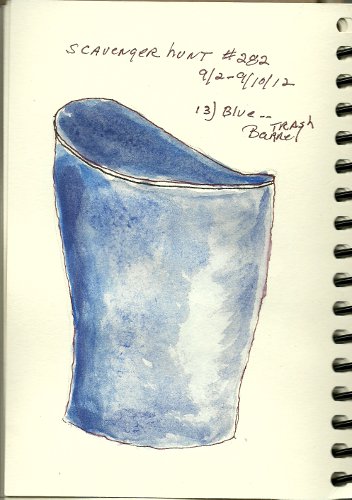 SCAVENGER HUNT #282
9/2-9/10/12
13) Blue--
TRASH
Barrel